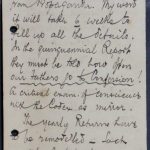 from Propaganda. My word
it will take 6 weeks to
fill up all the Details.
In the quinquennial Report
they must be told how often
our fathers go to Confession!
A critical exam. of conscience
with the Codex as mirror.
The Yearly Returns have
to be